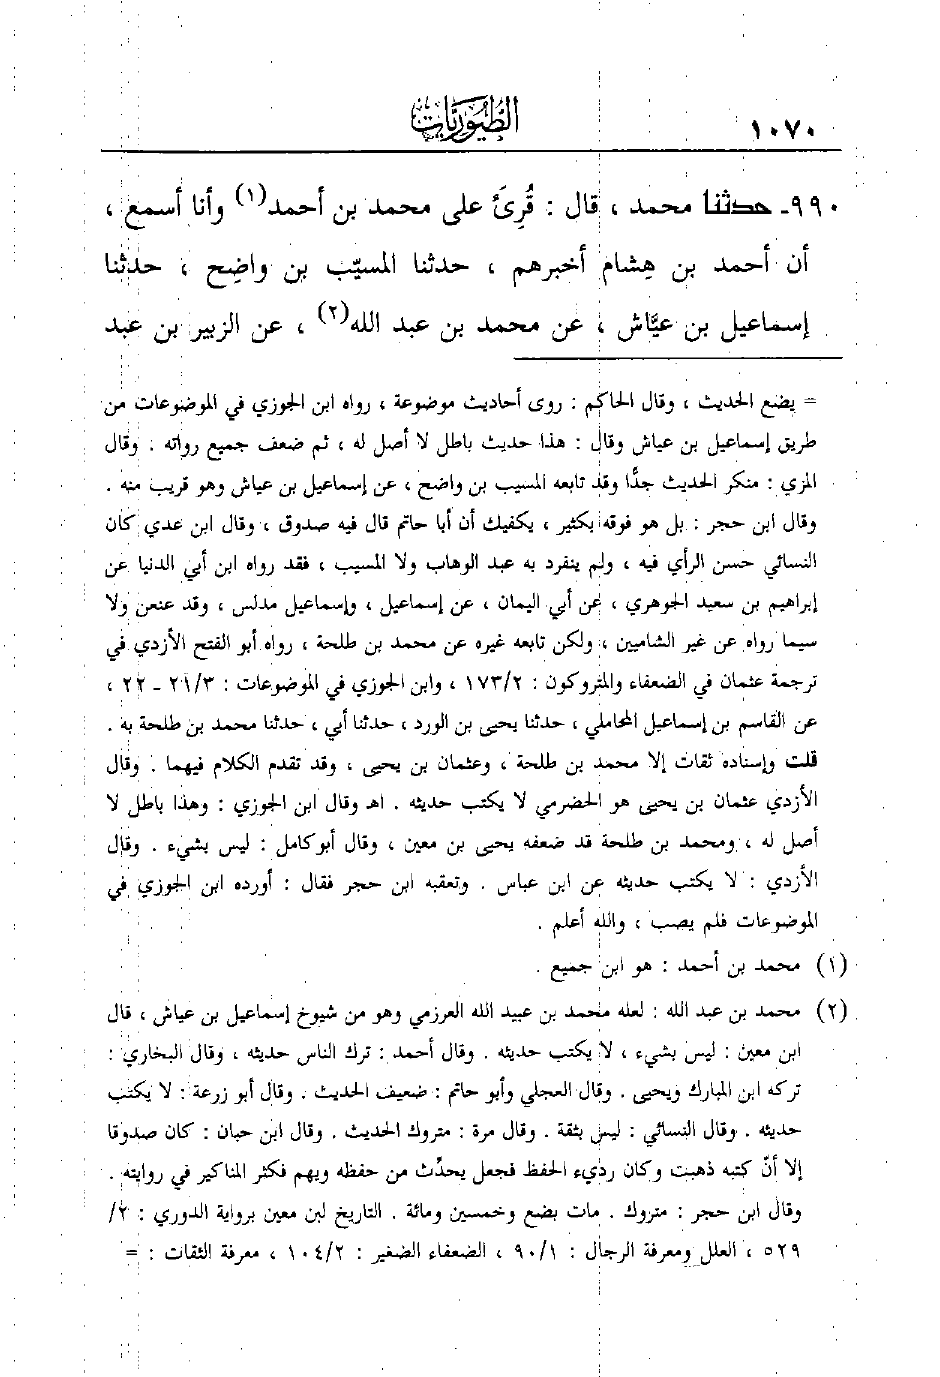 ١٠٧٠
الطُّيُورِيَّات
٩٩٠ـ حدثنا محمد ، قال : قُرِئَ على محمد بن أحمد(١) وأنا أسمع ،
أن أحمد بن هِشام أخبرهم ، حدثنا المسيّب بن واضِح ، حدثنا
إسماعيل بن عيَّاش ، عن محمد بن عبد الله(٢) ، عن الزبير بن عبد
= يضع الحديث ، وقال الحاكم : روى أحاديث موضوعة ، رواه ابن الجوزي في الموضوعات من
طريق إسماعيل بن عياش وقال : هذا حديث باطل لا أصل له ، ثم ضعف جميع رواته . وقال
المزي : منكر الحديث جدًّا وقد تابعه المسيب بن واضح ، عن إسماعيل بن عياش وهو قريب منه .
وقال ابن حجر : بل هو فوقه بكثير ، يكفيك أن أبا حاتم قال فيه صدوق ، وقال ابن عدي كان
النسائي حسن الرأي فيه ، ولم ينفرد به عبد الوهاب ولا المسيب ، فقد رواه ابن أبي الدنيا عن
إبراهيم بن سعيد الجوهري ، عن أبي اليمان ، عن إسماعيل ، وإسماعيل مدلس ، وقد عنعن ولا
سيما رواه عن غير الشاميين ، ولكن تابعه غيره عن محمد بن طلحة ، رواه أبو الفتح الأزدي في
ترجمة عثمان في الضعفاء والمتروكون : ١٧٣/٢ ، وابن الجوزي في الموضوعات : ٢١/٣ ـ ٢٢ ،
عن القاسم بن إسماعيل المحاملي ، حدثنا يحيى بن الورد ، حدثنا أبي ، حدثنا محمد بن طلحة به .
قلت وإسناده ثقات إلا محمد بن طلحة ، وعثمان بن يحيى ، وقد تقدم الكلام فيهما . وقال
الأزدي عثمان بن يحيى هو الحضرمي لا يكتب حديثه . اهـ وقال ابن الجوزي : وهذا باطل لا
أصل له ، ومحمد بن طلحة قد ضعفه يحيى بن معين ، وقال أبو كامل : ليس بشيء . وقال
الأزدي : لا يكتب حديثه عن ابن عباس . وتعقبه ابن حجر فقال : أورده ابن الجوزي في
الموضوعات فلم يصب ، والله أعلم .
(١) محمد بن أحمد : هو ابن جميع .
(٢) محمد بن عبد الله : لعله محمد بن عبيد الله العرزمي وهو من شيوخ إسماعيل بن عياش ، قال
ابن معين : ليس بشيء ، لا يكتب حديثه . وقال أحمد : ترك الناس حديثه ، وقال البخاري :
تركه ابن المبارك ويحيى . وقال العجلي وأبو حاتم : ضعيف الحديث . وقال أبو زرعة : لا يكتب
حديثه . وقال النسائي : ليس بثقة . وقال مرة : متروك الحديث . وقال ابن حبان : كان صدوقا
إلا أنّ كتبه ذهبت وكان رديء الحفظ فجعل يحدِّث من حفظه ويهم فكثر المناكير في روايته .
وقال ابن حجر : متروك . مات بضع وخمسين ومائة . التاريخ لبن معين برواية الدوري : ٢/
٥٢٩ ، العلل ومعرفة الرجال : ٩٠/١ ، الضعفاء الصغير : ١٠٤/٢ ، معرفة الثقات : =